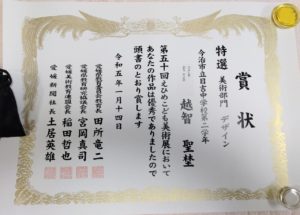 賞状
特選 美術部門 デザイン
今治市立日吉中学校第二学年
越智 聖埜
第五十回えひめこども美術展において
あなたの作品は優秀でありましたので
頭書のとおり賞します
令和五年一月十四日
愛媛県教育委員会教育長 田所竜二
宮岡真司
稲田哲也
愛媛新聞社社長 土居英雄